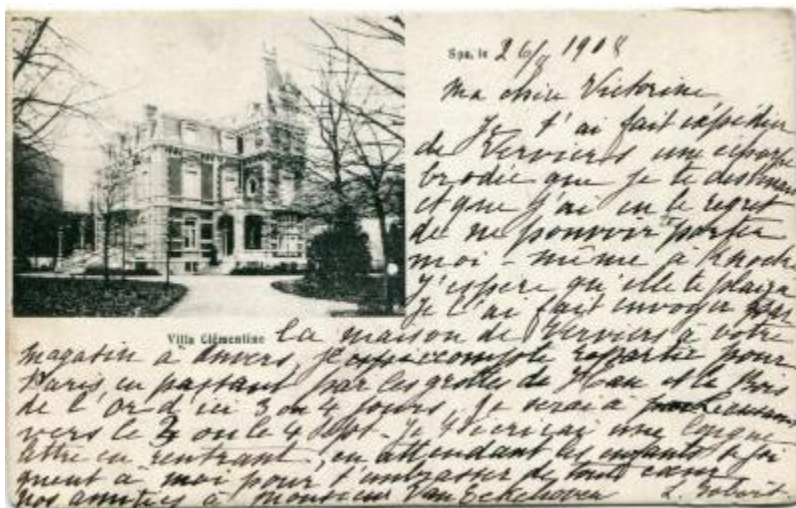 Spa, le 26/8 1908
Ma chère Victorine
Je t'ai fait expédier
de Verviers une écharpe
brodée que je te destinais
et que j'ai eu le regret
de ne pouvoir porter
moi-même à Knocke
J'espère qu'elle te plaira
Je l'ai fait envoyer par
Villa Clémentine
la maison de Verviers à votre
magasin à Anvers, je compte repartir pour
Paris en passant par les grottes de Han et le Bois
de l'or d'ici 3 ou 4 jours. Je serai à
vers le 3 ou le 4 Sept. Je t'écrirai une longue
lettre en rentrant, en attendant les enfants se joi
gnent à moi pour t'embrasser de tout cœur
nos amitiés à monsieur Van Eckehoven L.